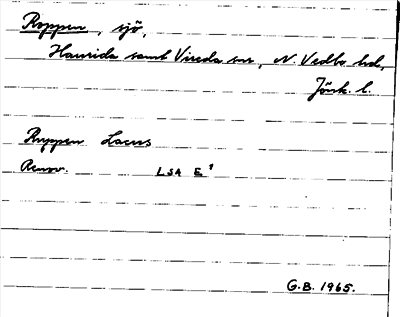 Roppen, sjö,
Haurida samt Vireda snr, N. Vedbo hd,
Jönk. l.
Ruppen Lacus
LSA E¹
G.B. 1965.